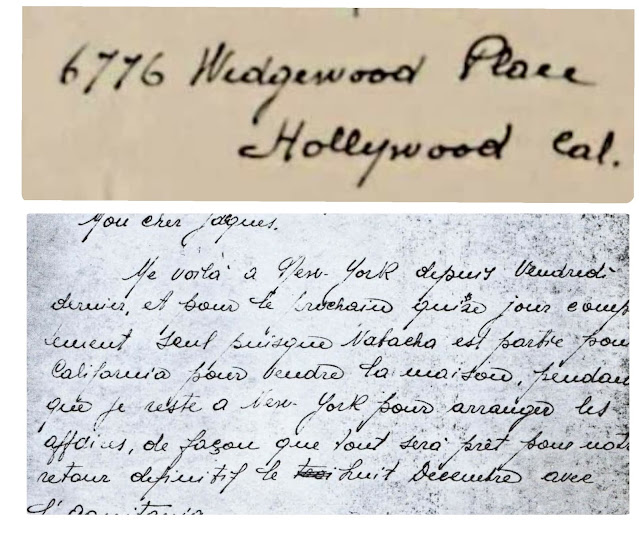 6776 Wedgewood Place
Hollywood Cal.
Mon cher Jaques.
Me voilà a New-York depuis Vendredi
dernier, et pour le prochain quinze jour comp
lement seul puisque Natacha est partie pour
California pour vendre la maison, pendan
que je reste a New-York pour arranger les
affaires, de façon que tout sera prêt pour notr
retour definitif le huit Decembre avec
l'Aquitania